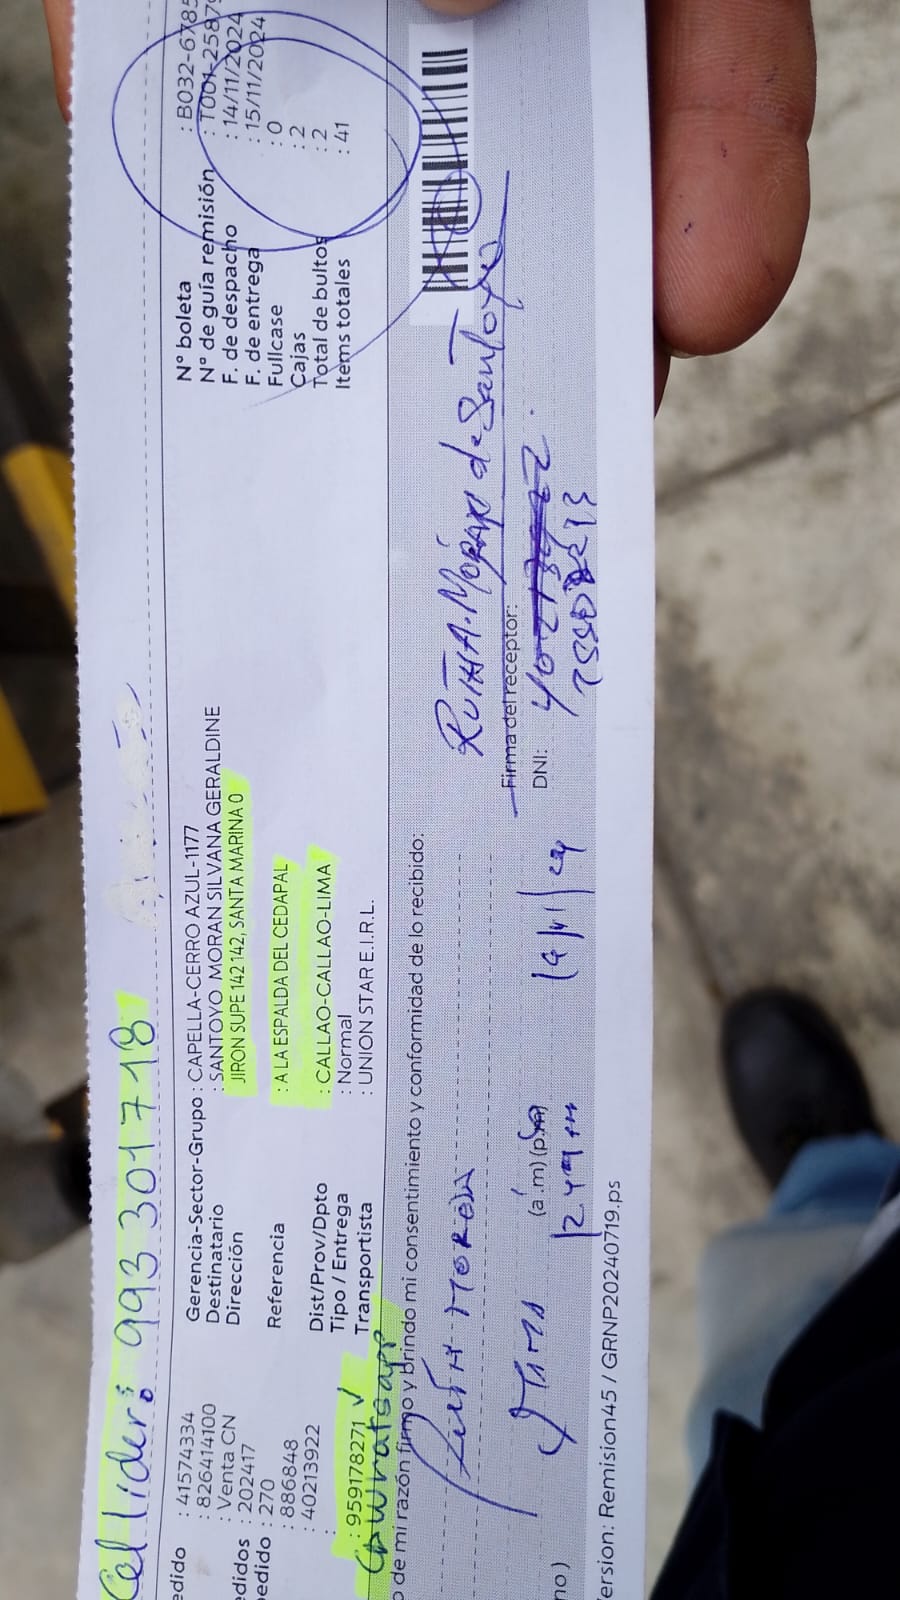 Cel lider: 993 301718
edido : 41574334
: 826414100
: Venta CN
edidos : 202417
edido : 270
: 886848
: 40213922
: 959178271 ✓
Gerencia-Sector-Grupo : CAPELLA-CERRO AZUL-1177
Destinatario : SANTOYO MORAN SILVANA GERALDINE
Dirección JIRON SUPE 142 142, SANTA MARINA 0
Referencia : A LA ESPALDA DEL CEDAPAL
Dist/Prov/Dpto : CALLAO-CALLAO-LIMA
Tipo / Entrega : Normal
Transportista : UNION STAR E.I.R.L.
N° boleta : B032-6785
N° de guía remisión : T001-25879
F. de despacho : 14/11/2024
F. de entrega : 15/11/2024
Fullcase : 0
Cajas : 2
Total de bultos : 2
Items totales : 41
whatsapp
o de mi razón firmo y brindo mi consentimiento y conformidad de lo recibido:
RUTH A. MORÁN de SANTOYO
Firma del receptor:
DNI:
25508213
(a.m)(p.m)
no)
ersion: Remision45 / GRNP20240719.ps